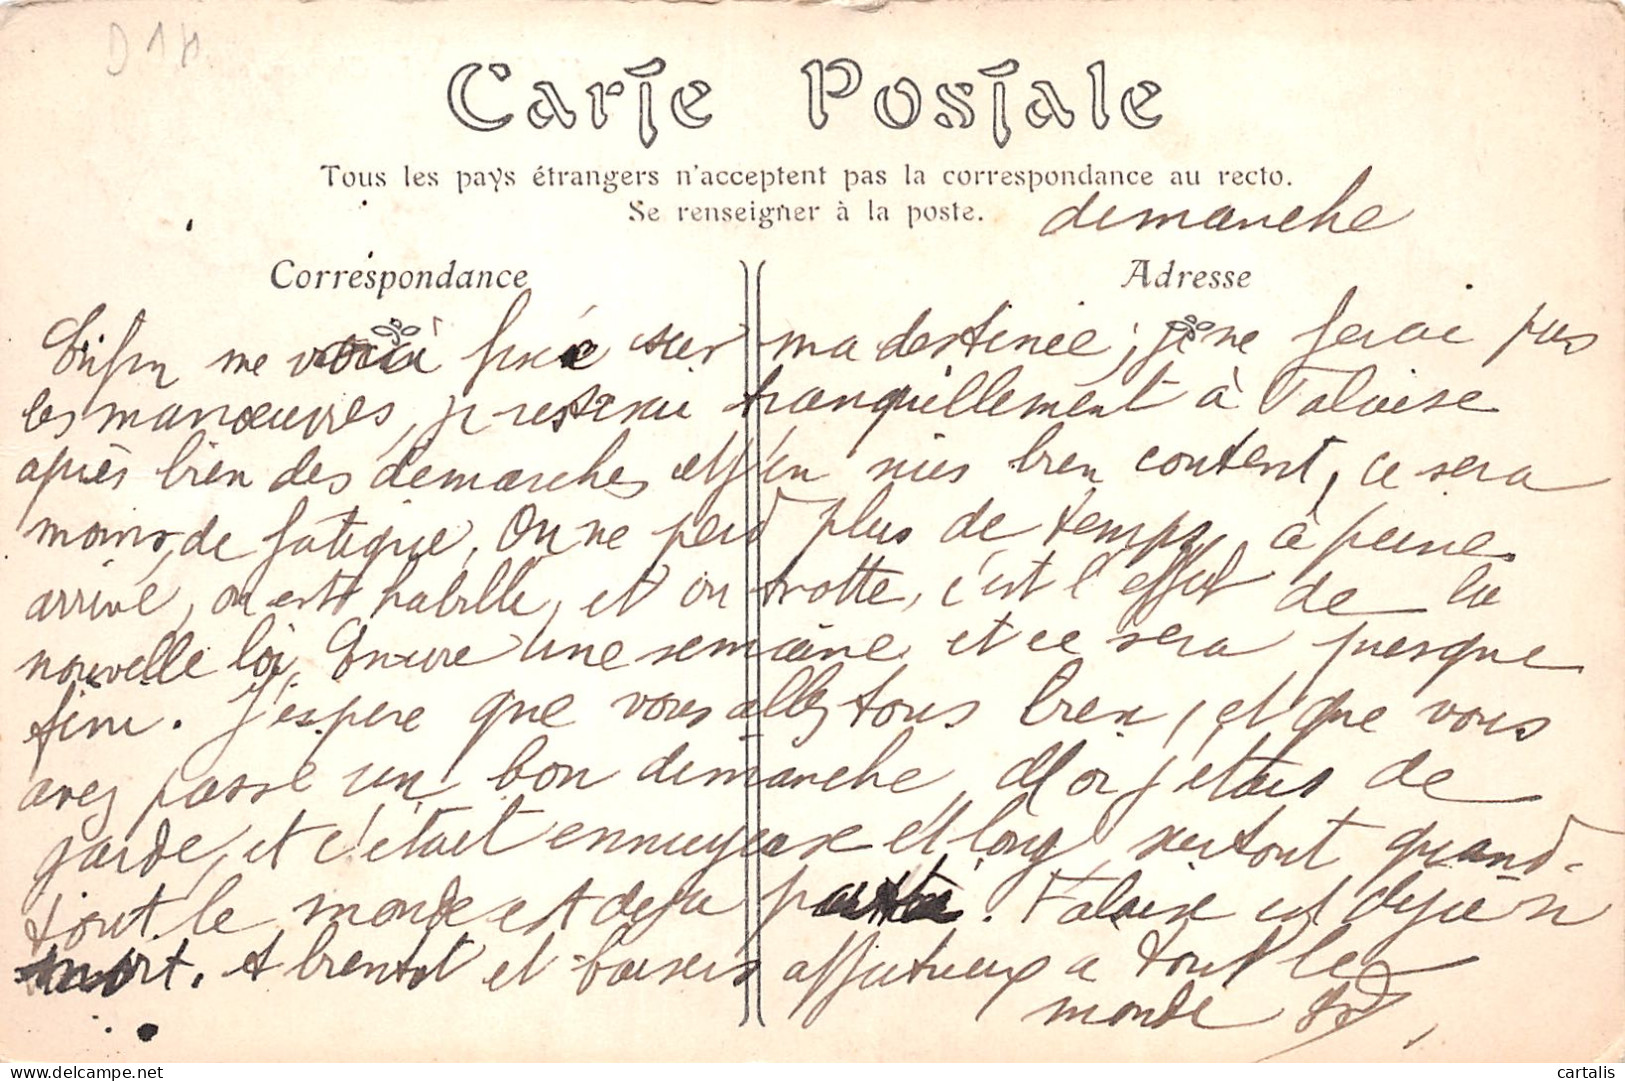 D 14
Carte Postale
Tous les pays étrangers n'acceptent pas la correspondance au recto.
Se renseigner à la poste.
dimanche
Correspondance
Adresse
Enfin me voici fixé sur ma destinée ; je ne ferai pas
les manœuvres, je resterai tranquillement à Falaise
après bien des démarches et j'en suis bien content, ce sera
moins de fatigue. On ne perd plus de temps, à peine
arrivé, on est habillé, et on trotte, c'est l'effet de la
nouvelle loi. Encore une semaine et ce sera presque
fini. J'espère que vous allez tous bien, et que vous
avez passé un bon dimanche. Moi j'étais de
garde, et c'était ennuyeux et long surtout quand
tout le monde est déjà parti. Falaise est déjà si
mort. A bientot et baisers affectueux a tout le
monde
cartalis